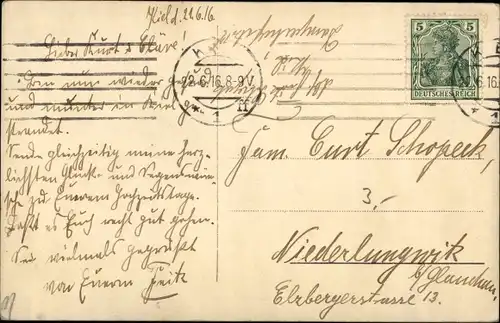 Kiel d. 21.6.16
Lieber Kurt & Kläre!
Bin nun wieder
und munter in Kiel
strandet.
Sende gleichzeitig meine herz-
lichsten Glück- und Segenswün-
sche zu Euerem Hochzeitstage.
Laßt es Euch recht gut gehen.
Sei vielmals gegrüßt
von Euerm Fritz
KIEL
22.6.16.8-9V.
1
5 5
DEUTSCHES REICH
Fam. Curt Schopeck,
3,-
Niederlungwitz
b/Glauchau,
Elzbergerstrasse 13.